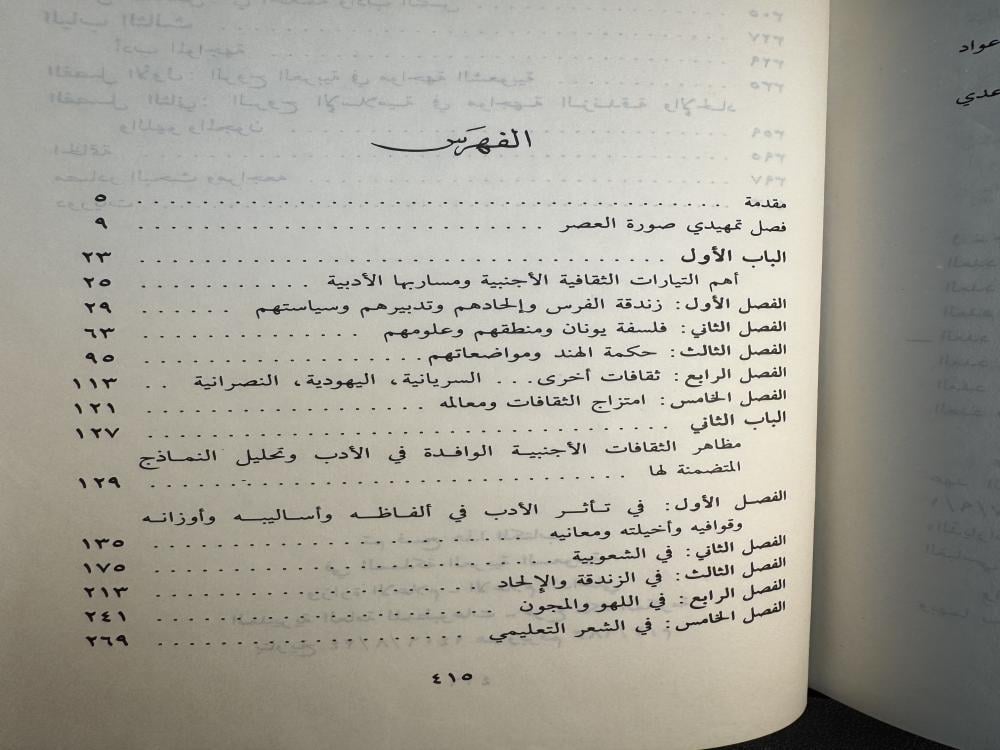 الفهرس
مقدمة . . . . . . . . . . . . . . . . . . . . . . . . . . ٥
فصل تمهيدي صورة العصر . . . . . . . . . . . . . . . . . ٩
الباب الأول . . . . . . . . . . . . . . . . . . . . . . . ٢٣
أهم التيارات الثقافية الأجنبية ومساربها الأدبية . . . . . . . . . ٢٥
الفصل الأول: زندقة الفرس وإلحادهم وتدبيرهم وسياستهم . . . . . . ٢٩
الفصل الثاني: فلسفة يونان ومنطقهم وعلومهم . . . . . . . . . ٦٣
الفصل الثالث: حكمة الهند ومواضعاتهم . . . . . . . . . . . ٩٥
الفصل الرابع: ثقافات أخرى... السريانية، اليهودية، النصرانية . . ١١٣
الفصل الخامس: امتزاج الثقافات ومعالمه . . . . . . . . . . . ١٢١
الباب الثاني . . . . . . . . . . . . . . . . . . . . . . ١٢٧
مظاهر الثقافات الأجنبية الوافدة في الأدب وتحليل النماذج
المتضمنة لها . . . . . . . . . . . . . . . . . . . . . ١٢٩
الفصل الأول: في تأثر الأدب في ألفاظه وأساليبه وأوزانه
وقوافيه وأخيلته ومعانيه . . . . . . . . . . . . . . . . ١٣٥
الفصل الثاني: في الشعوبية . . . . . . . . . . . . . . . . ١٧٥
الفصل الثالث: في الزندقة والإلحاد . . . . . . . . . . . . . ٢١٣
الفصل الرابع: في اللهو والمجون . . . . . . . . . . . . . . ٢٤١
الفصل الخامس: في الشعر التعليمي . . . . . . . . . . . . . ٢٦٩
٤١٥
عواد